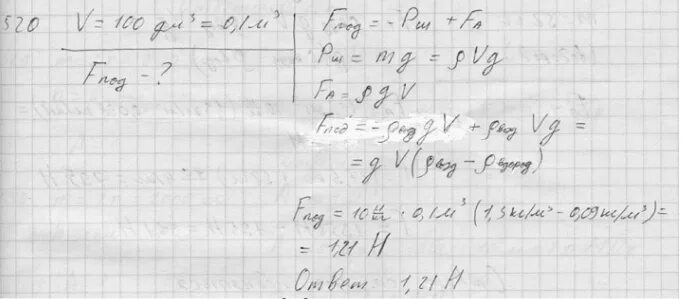 520 V = 100 дм³ = 0,1 м³
Fпод - ?
Fпод = -Рш + FА
Рш = mg = ρVg
FА = ρgV
Fпод = -ρвод gV + ρвозд Vg =
= gV(ρвозд - ρводород)
Fпод = 10 Н/кг · 0,1 м³ (1,3 кг/м³ - 0,09 кг/м³) =
= 1,21 Н
Ответ: 1,21 Н